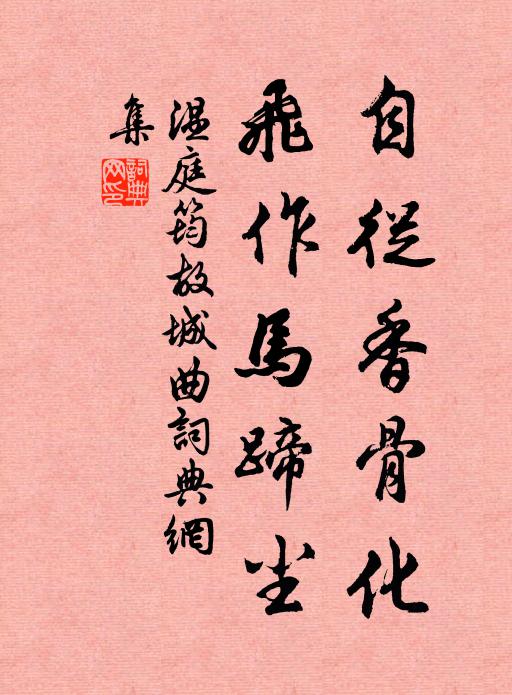 自從香骨化
飛作馬蹄尘
温庭筠故城曲詞典網
集
詞典
网印